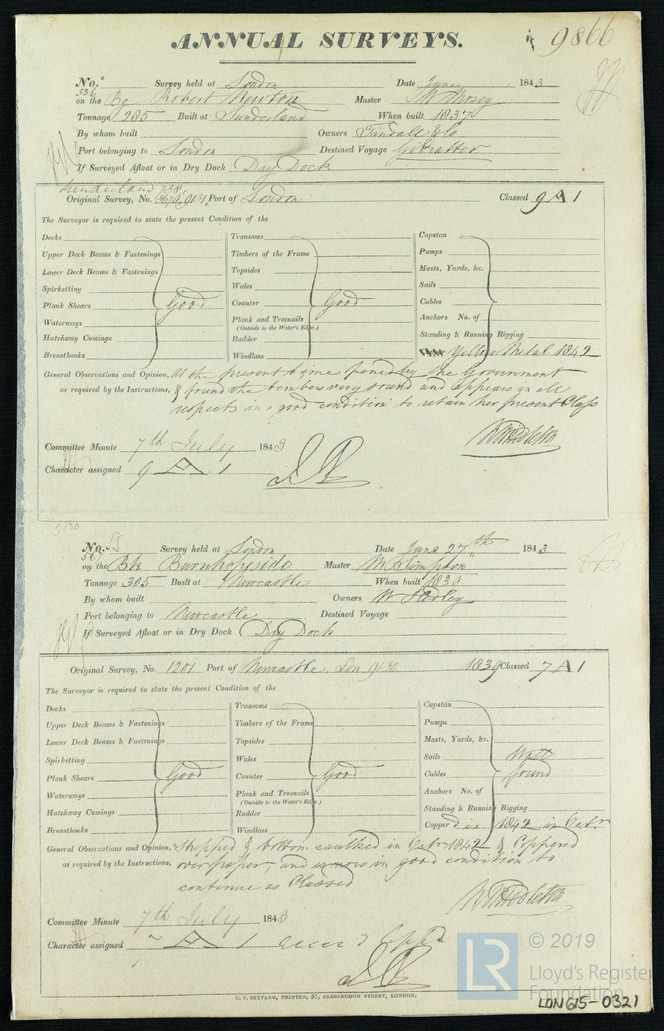 ANNUAL SURVEYS.
9866
No. 336 Survey held at London Date June 1843
on the Bg Robert Newton Master
Tonnage 285 Built at Sunderland When built 1837
By whom built Owners Tindall & Co
Port belonging to London Destined Voyage Gibralter
If Surveyed Afloat or in Dry Dock Dry Dock
Sunderland 738,
Original Survey, No. Port of London Classed 9 A 1
The Surveyor is required to state the present Condition of the
Decks Transoms Capstan
Upper Deck Beams & Fastenings Timbers of the Frame Pumps
Lower Deck Beams & Fastenings Topsides Masts, Yards, &c.
Spirketting Wales Sails
Plank Shears Good Counter Good Cables
Waterways Plank and Treenails Anchors No. of
(Outside to the Water's Edge.)
Hatchway Comings Rudder Standing & Running Rigging
Breasthooks Windlass Yellow Metal 1842
General Observations and Opinion, At the present time opened by the Government
as required by the Instructions, & found the timbers very sound and appears in all
respects in a good condition to retain her present Class
Committee Minute 7th July 1843
Character assigned 9 A 1
No. 561 Survey held at London Date June 27th 1843
on the Bk Burnhopeside Master Simpson
Tonnage 305 Built at Newcastle When built 1830
By whom built Owners W Hedley
Port belonging to Newcastle Destined Voyage
If Surveyed Afloat or in Dry Dock Dry Dock
Original Survey, No. 1201 Port of Newcastle Lon 9130 1839 Classed 7 A 1
The Surveyor is required to state the present Condition of the
Decks Transoms Capstan
Upper Deck Beams & Fastenings Timbers of the Frame Pumps
Lower Deck Beams & Fastenings Topsides Masts, Yards, &c.
Spirketting Wales Sails Well
Plank Shears Good Counter Good Cables found
Waterways Plank and Treenails Anchors No. of
(Outside to the Water's Edge.)
Hatchway Comings Rudder Standing & Running Rigging
Breasthooks Windlass Copper'd in 1842 in Octr
General Observations and Opinion, Stripped & bottom caulked in Octr 1842 & Coppered
as required by the Instructions, over paper, and in good condition to
continue as Classed
Committee Minute 7th July 1843
Character assigned 7 A 1
C. F. SEYFANG, PRINTER, 57, FARRINGDON STREET, LONDON.
LR © 2019
Lloyd's Register
Foundation
LON615-0321